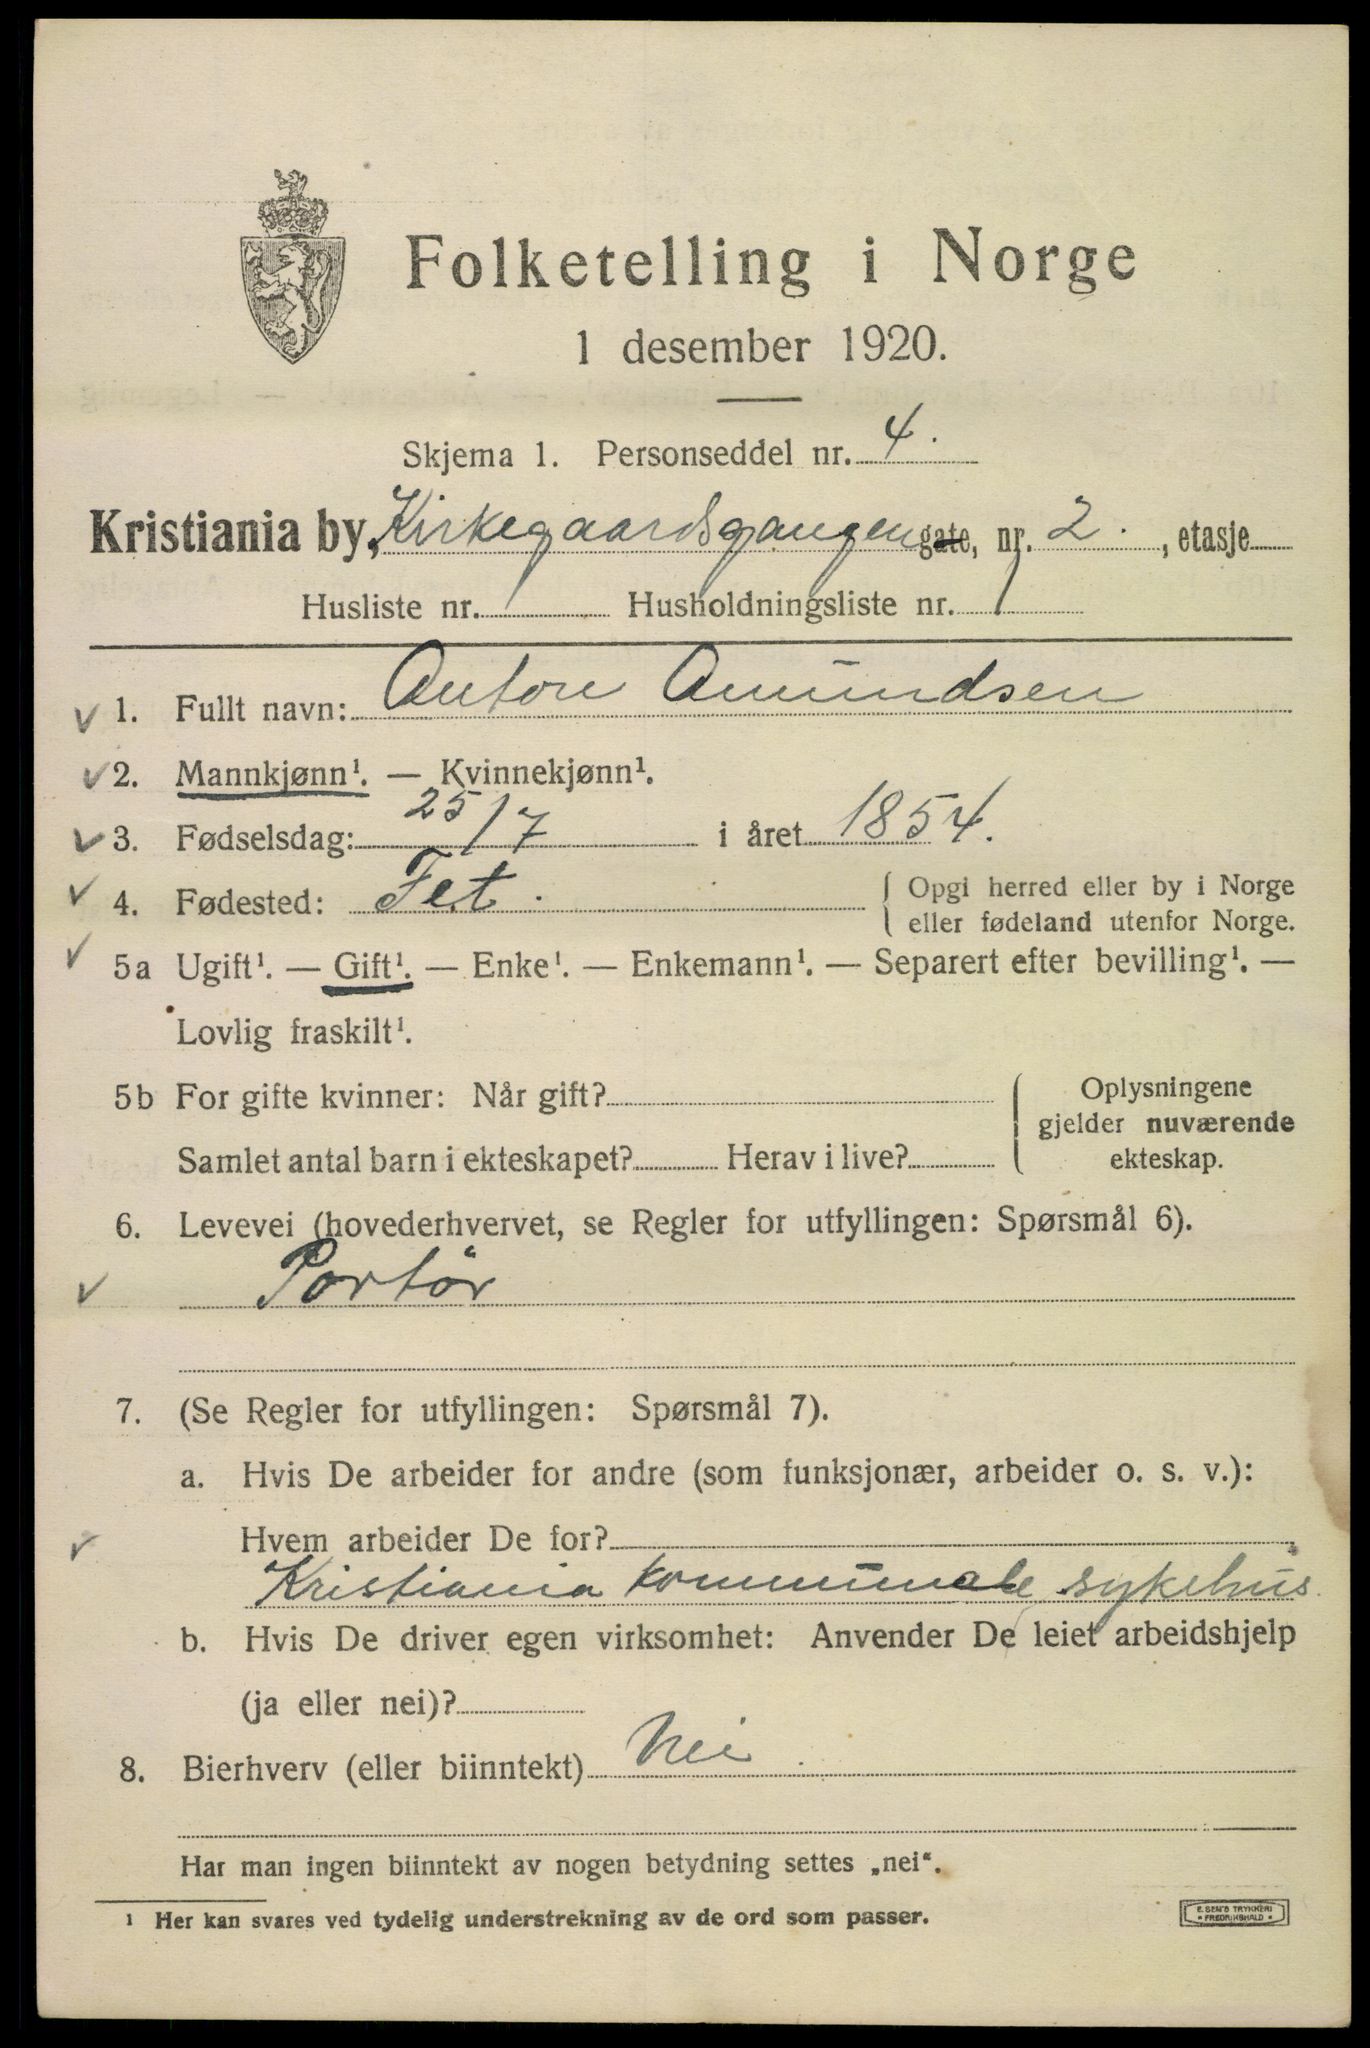 Folketelling i Norge
1 desember 1920.
Skjema 1. Personseddel nr. 4.
Kristiania by, Kirkegaardsgangen gate, nr. 2. , etasje
Husliste nr. 1 Husholdningsliste nr. 1
1. Fullt navn: Anton Amundsen
2. Mannkjønn¹. — Kvinnekjønn¹.
3. Fødselsdag: 25/7 i året 1854.
4. Fødested: Fet. { Opgi herred eller by i Norge
eller fødeland utenfor Norge.
5a Ugift¹. — Gift¹. — Enke¹. — Enkemann¹. — Separert efter bevilling¹. —
Lovlig fraskilt¹.
5b For gifte kvinner: Når gift? { Oplysningene
gjelder nuværende
Samlet antal barn i ekteskapet? Herav i live? ekteskap.
6. Levevei (hovederhvervet, se Regler for utfyllingen: Spørsmål 6).
Portör
7. (Se Regler for utfyllingen: Spørsmål 7).
a. Hvis De arbeider for andre (som funksjonær, arbeider o. s. v.):
Hvem arbeider De for?
Kristiania kommunale sykehus
b. Hvis De driver egen virksomhet: Anvender De leiet arbeidshjelp
(ja eller nei)?
8. Bierhverv (eller biinntekt) Nei.
Har man ingen biinntekt av nogen betydning settes „nei“.
¹ Her kan svares ved tydelig understrekning av de ord som passer.
E. SEM'S TRYKKERI
* FREDRIKSHALD *